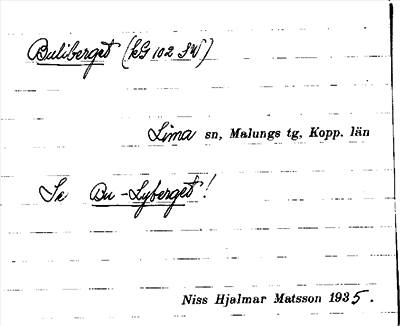 Buliberget (kG 102 SW)
Lima sn, Malungs tg, Kopp. län
Se Bu-Lyberget!
Niss Hjalmar Matsson 1935.